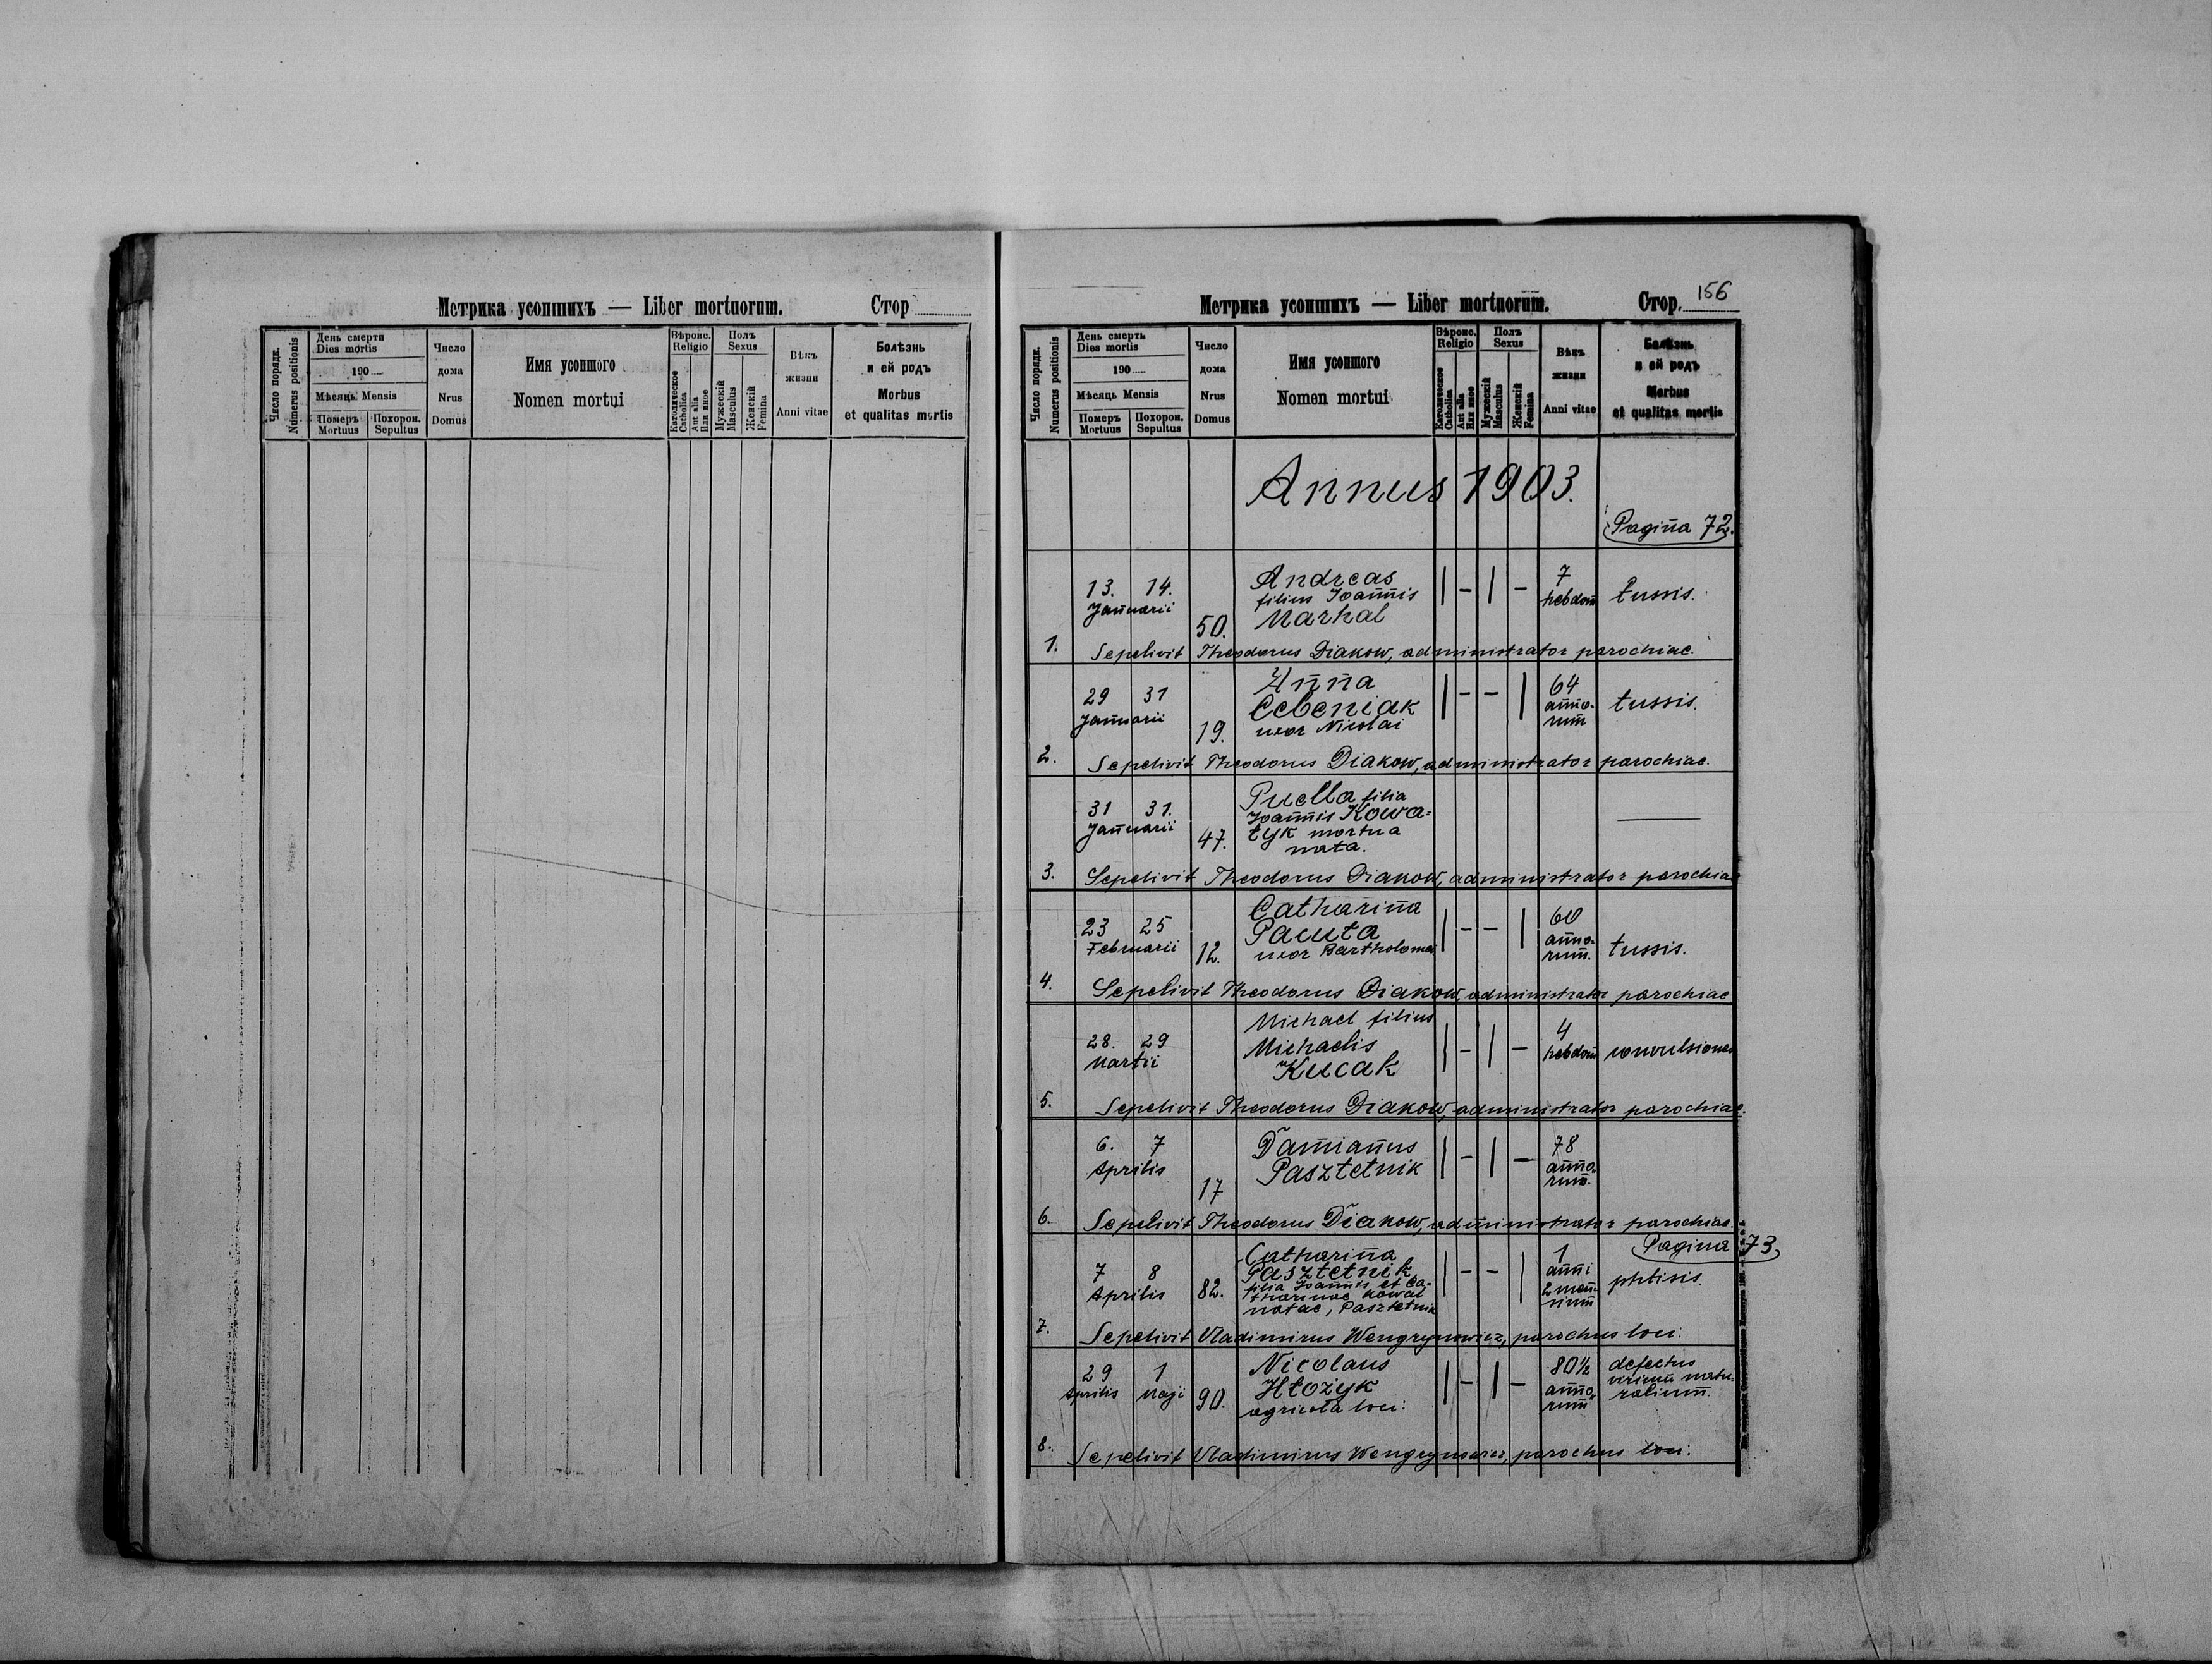 Метрика усопшихъ — Liber mortuorum. Стор
Число порядк. Numerus positionis
День смерти
Dies mortis
190
Мѣсяць Mensis
Померъ Mortuus
Похорон. Sepultus
Число дома Nrus Domus
Имя усопшого
Nomen mortui
Вѣроис. Religio
Католическое Catholica
Aut alia Или иное
Полъ Sexus
Мужескій Masculus
Женскій Femina
Вѣкъ жизни
Anni vitae
Болѣзнь
и ей родъ
Morbus
et qualitas mortis
Метрика усопшихъ — Liber mortuorum. Стор. 156
Число порядк. Numerus positionis
День смерть
Dies mortis
190
Мѣсяць Mensis
Померъ Mortuus
Похорон. Sepultus
Число дома Nrus Domus
Имя усопшого
Nomen mortui
Вѣроис. Religio
Католическое Catholica
Aut alia Или иное
Полъ Sexus
Мужескій Masculus
Женскій Femina
Вѣкъ жизни
Anni vitae
Болѣзнь
и ей родъ
Morbus
et qualitas mortis
Annus 1903.
Pagina 72.
13. 14.
Januarii
50.
Andreas
filius Joannis
Markal
| - | -
7
hebdom
tussis.
1. Sepelivit Theodorus Diakow, administrator parochiae.
29 31
Januarii
19.
Anna
Cebeniak
uxor Nicolai
| - - |
64
anno-
rum
tussis.
2. Sepelivit Theodorus Diakow, administrator parochiae.
31 31.
Januarii
47.
Puella filia
Joannis Kowa-
łyk mortua
nata.
—
3. Sepelivit Theodorus Diakow, administrator parochiae
23 25
Februarii
12.
Catharina
Pacuta
uxor Bartholomei
| - - |
60
anno-
rum.
tussis.
4. Sepelivit Theodorus Diakow, administrator parochiae
28. 29
Martii
Michael filius
Michaelis
Kucak
| - | -
4
hebdom
convulsiones
5. Sepelivit Theodorus Diakow, administrator parochiae.
6. 7
Aprilis
17
Damianus
Pasztetnik
| - | -
78
anno-
rum.
6. Sepelivit Theodorus Diakow, administrator parochiae.
Pagina 73
7 8
Aprilis
82.
Catharina
Pasztetnik
filia Joannis et Ca-
tharinae Kowal
natae, Pasztetnik
| - - |
1
anni
2 men-
sium
phtisis.
7. Sepelivit Vladimirus Wengrynowicz, parochus loci.
29 1
Aprilis Maji
90.
Nicolaus
Hłożyk
agricola loci.
| - | -
80 1/2
anno-
rum
defectus
virium natu-
ralium.
8. Sepelivit Vladimirus Wengrynowicz, parochus loci.